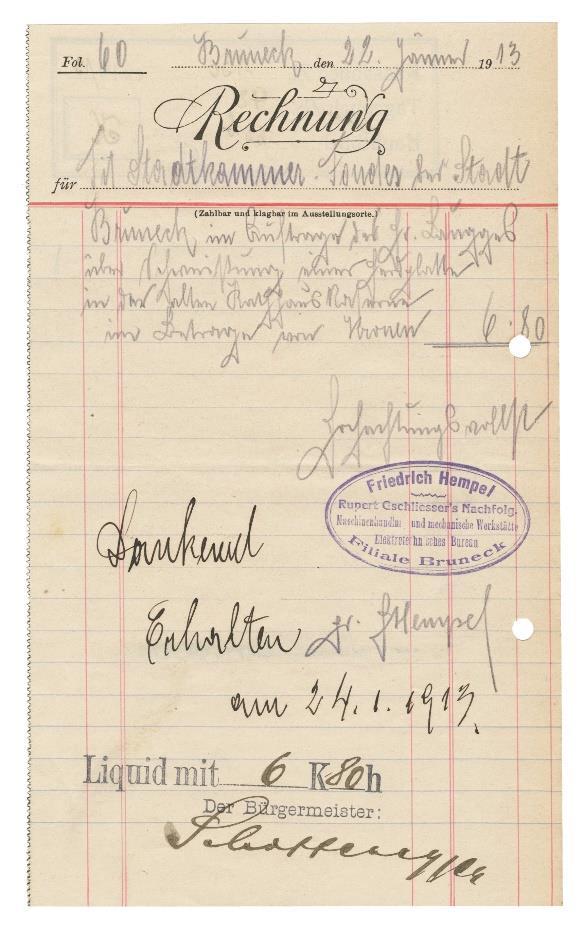 Fol. 60 Bruneck den 22. Jänner 1913
Rechnung
für Stadtkammer der Stadt
(Zahlbar und klagbar im Ausstellungsorte.)
Bruneck im Auftrage des Hr.
über einer
in der alten Rathaus
im Betrage von Kronen 6.80
Hochachtungsvollst
Friedrich Hempel
Rupert Gschliesser's Nachfolg.
Maschinenhandlung und mechanische Werkstätte
Elektrotechnisches Bureau
Filiale Bruneck
Dankend
Erhalten Hempel
am 24.1.1913.
Liquid mit 6 K 80 h
Der Bürgermeister: